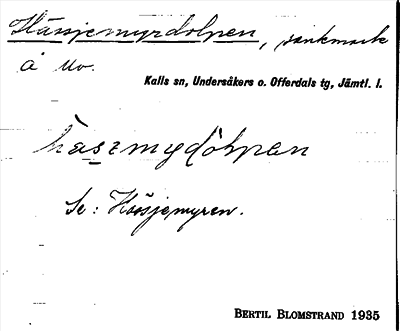 Hässjemyrdolpen, sankmark
å Uv.
Kalls sn, Undersåkers o. Offerdals tg, Jämtl. l.
Se: Hässjemyren.
BERTIL BLOMSTRAND 1935